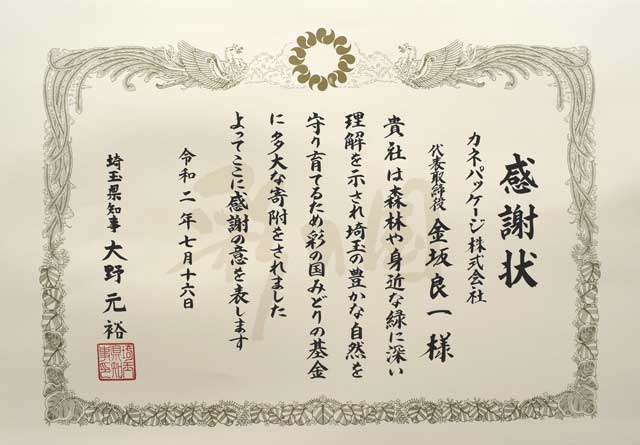 感謝状
カネパッケージ株式会社
代表取締役 金坂良一様
貴社は森林や身近な緑に深い
理解を示され埼玉の豊かな自然を
守り育てるため彩の国みどりの基金
に多大な寄附をされました
よってここに感謝の意を表します
令和二年七月十六日
埼玉県知事 大野元裕